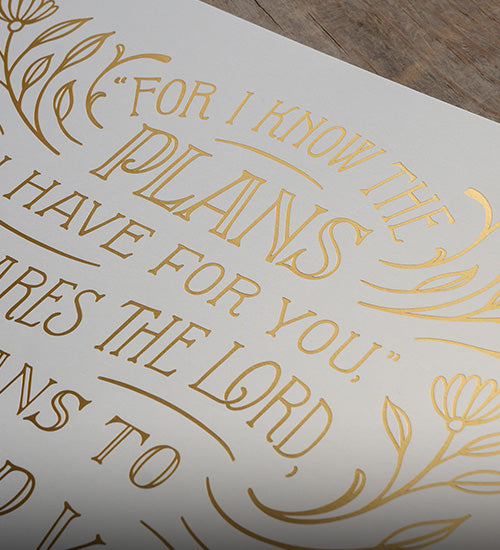 “FOR I KNOW THE
PLANS
HAVE FOR YOU,”
THE LORD,
TO